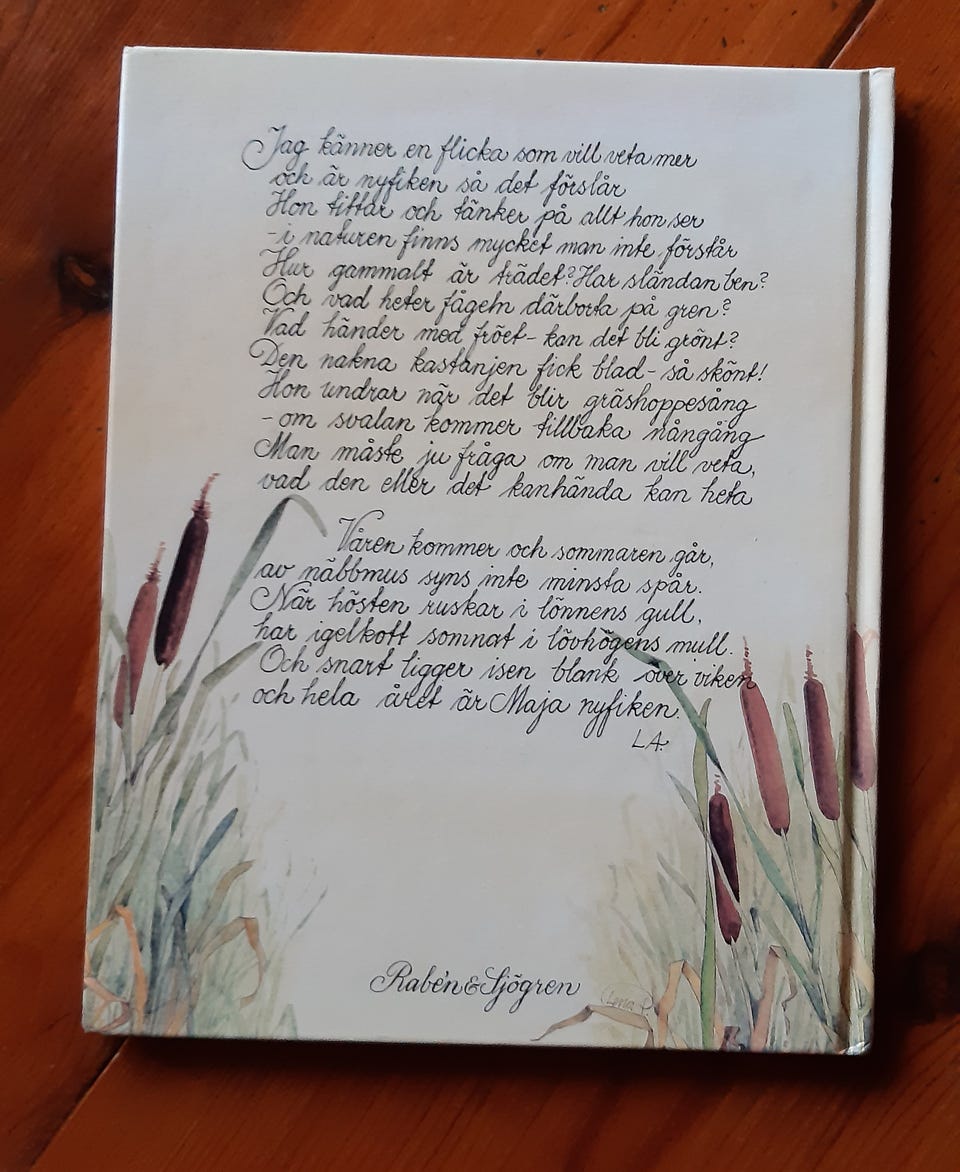 Jag känner en flicka som vill veta mer
och är nyfiken så det förslår
Hon tittar och tänker på allt hon ser
- i naturen finns mycket man inte förstår
Hur gammalt är trädet? Har sländan ben?
Och vad heter fågeln därborta på gren?
Vad händer med fröet - kan det bli grönt?
Den nakna kastanjen fick blad - så skönt!
Hon undrar när det blir gräshoppesång
- om svalan kommer tillbaka nångång
Man måste ju fråga om man vill veta,
vad den eller det kanhända kan heta
Våren kommer och sommaren går,
av näbbmus syns inte minsta spår.
När hösten ruskar i lönnens gull,
har igelkott somnat i lövhögens mull.
Och snart ligger isen blank över viken
och hela året är Maja nyfiken.
L.A.
Rabén & Sjögren
Lena